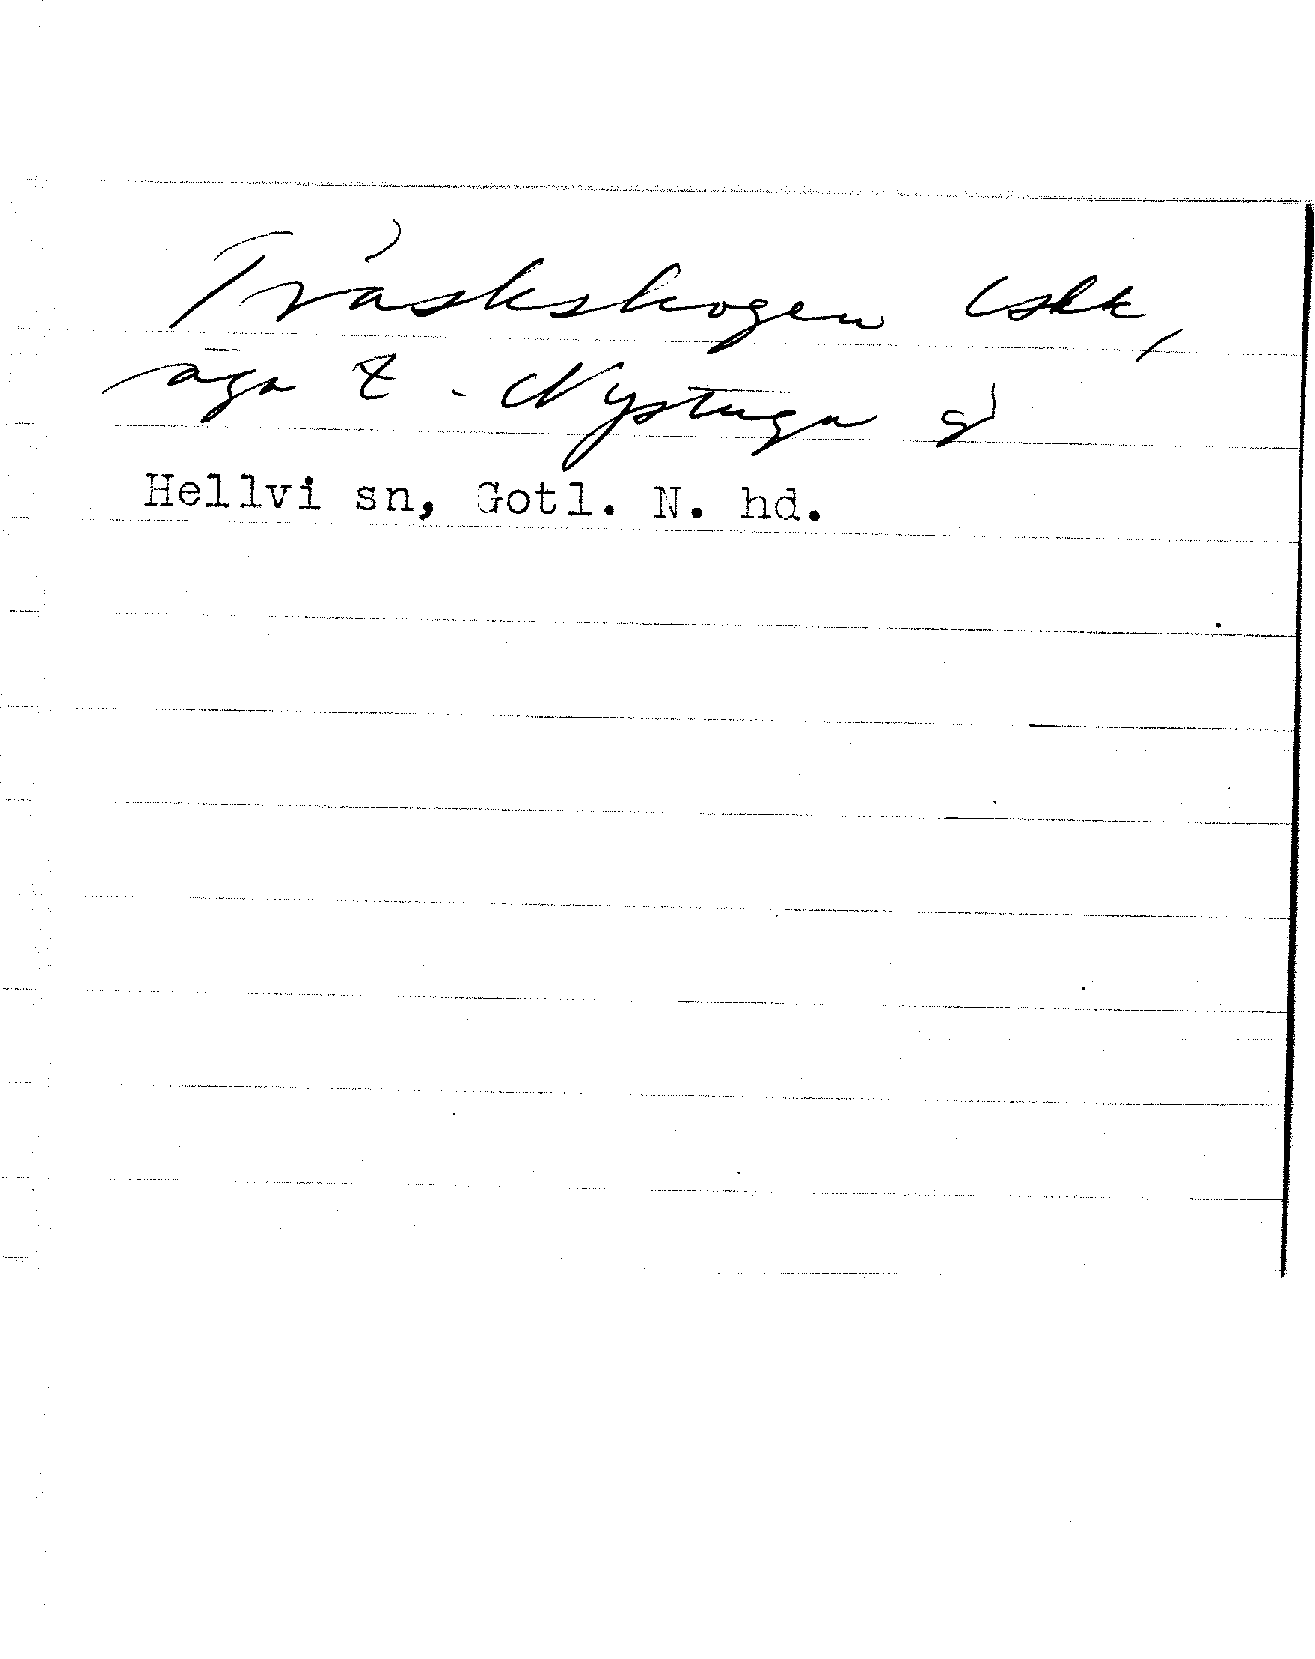 Träskskogen (skk,
äga t. Nystuga g)
Hellvi sn, Gotl. N. hd.